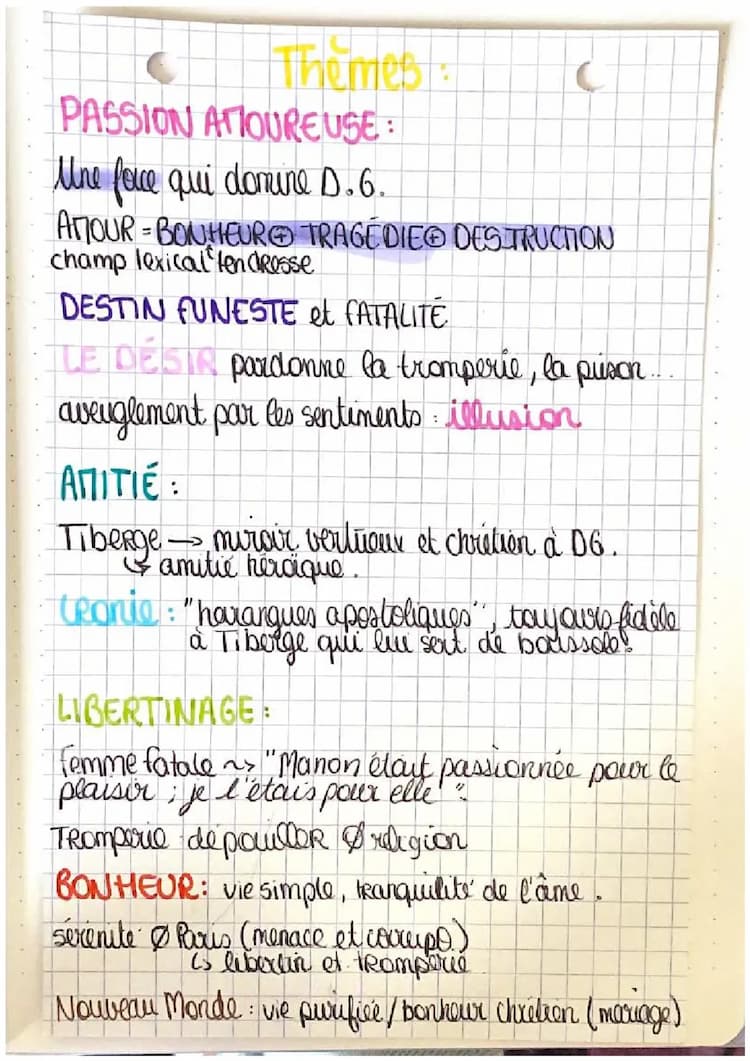 Thèmes :
PASSION AMOUREUSE :
Une force qui domine D.G.
AMOUR = BONHEUR ⊕ TRAGÉDIE ⊕ DESTRUCTION
champ lexical tendresse
DESTIN FUNESTE et FATALITÉ
LE DÉSIR pardonne la tromperie, la prison...
aveuglement par les sentiments : illusion
AMITIÉ :
Tiberge → miroir vertueux et chrétien à DG.
↳ amitié héroïque.
Ironie : "harangues apostoliques", toujours fidèle
à Tiberge qui lui sert de boussole !
LIBERTINAGE :
femme fatale ~> "Manon était passionnée pour le
plaisir ; je l'étais pour elle".
Tromperie dépouiller Ø religion
BONHEUR : vie simple, tranquilité de l'âme.
sérénité Ø Paris (menace et corrupt°)
↳ libertin et tromperie
Nouveau Monde : vie purifiée / bonheur chrétien (mariage)